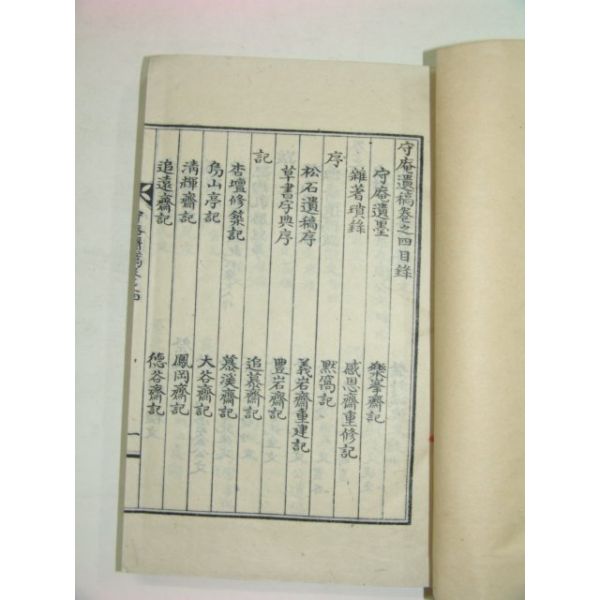 守庵遺稿卷之四目錄
守庵遺墨
樂峯齋記
雜著瑣錄
感思齋重修記
序
默窩記
松石遺稿序
義岩齋重建記
草書字典序
豊岩齋記
記
追慕齋記
杏壇修築記
慕溪齋記
烏山亭記
大谷齋記
淸輝齋記
鳳岡齋記
追遠齋記
德谷齋記
一